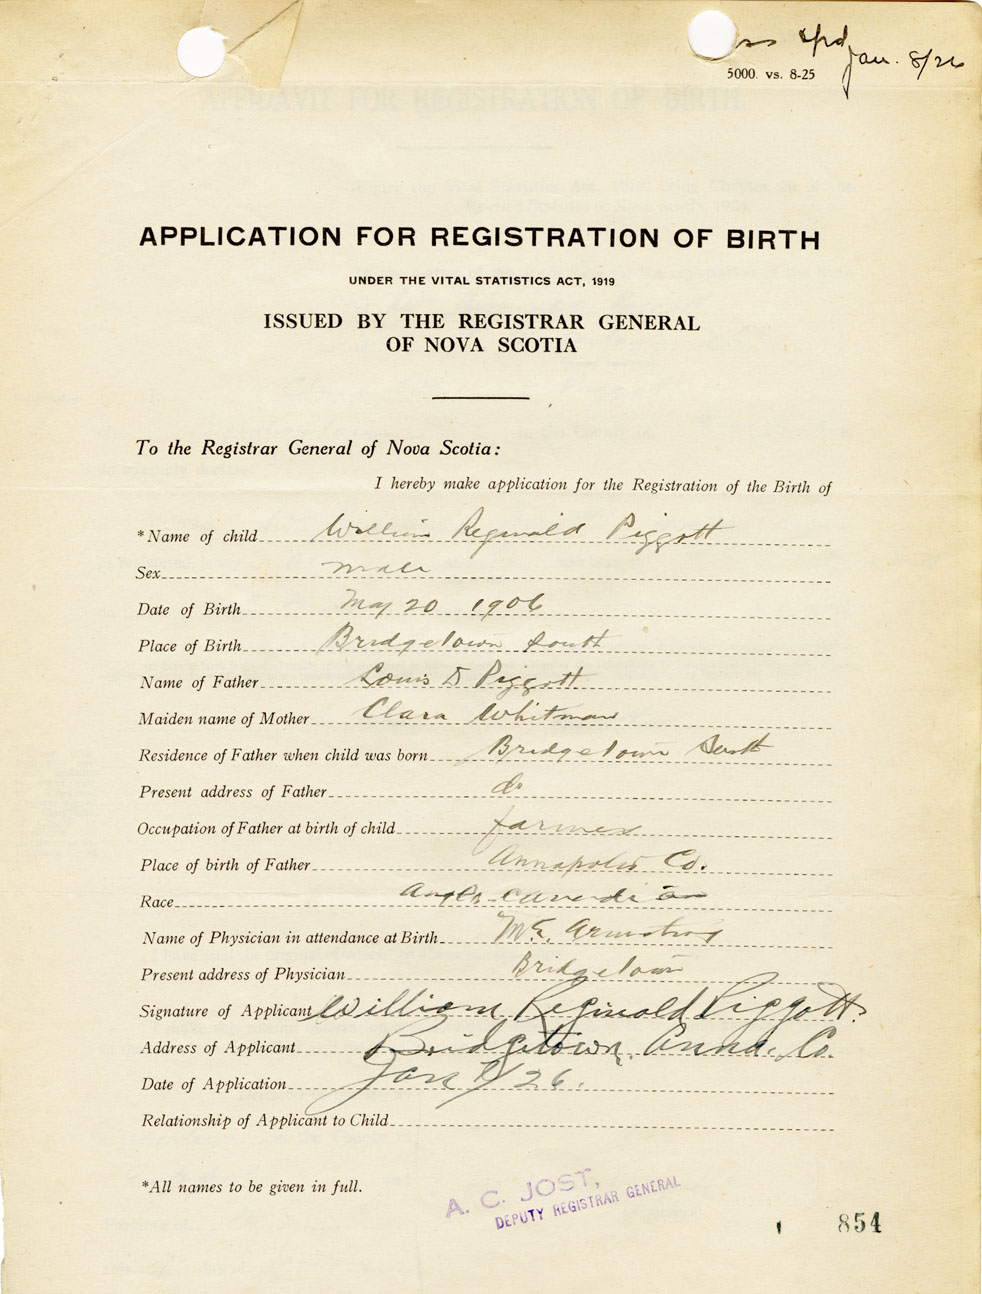 Jan. 8/26
5000. vs. 8-25
APPLICATION FOR REGISTRATION OF BIRTH
UNDER THE VITAL STATISTICS ACT, 1919
ISSUED BY THE REGISTRAR GENERAL
OF NOVA SCOTIA
To the Registrar General of Nova Scotia:
I hereby make application for the Registration of the Birth of
*Name of child William Reginald Piggott
Sex male
Date of Birth May 20 1906
Place of Birth Bridgetown South
Name of Father Louis D Piggott
Maiden name of Mother Clara Whitman
Residence of Father when child was born Bridgetown South
Present address of Father do
Occupation of Father at birth of child farmer
Place of birth of Father Annapolis Co.
Race Anglo Canadian
Name of Physician in attendance at Birth M.E. Armstrong
Present address of Physician Bridgetown
Signature of Applicant William Reginald Piggott.
Address of Applicant Bridgetown, Anna. Co.
Date of Application Jan 7/26.
Relationship of Applicant to Child
*All names to be given in full.
A. C. JOST,
DEPUTY REGISTRAR GENERAL
854